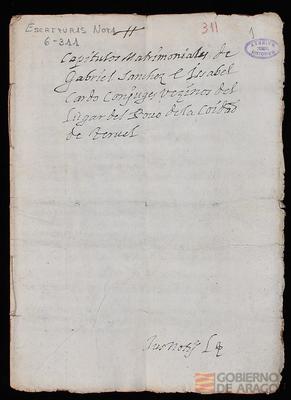 ESCRITURAS NOTS
6-311
311
1
Capitulos Matrimoniales de
Gabriel Sanchez e Issabel
Cardo Conjuges Vezinos del
Lugar del Povo de la Ciudad
de Teruel
GOBIERNO
DE ARAGON